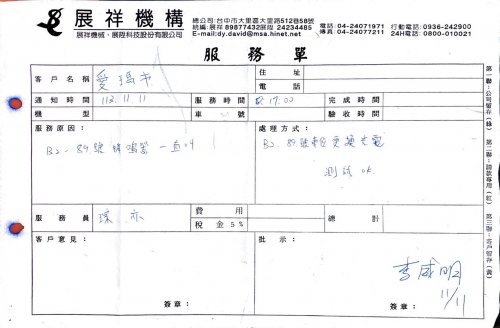 展祥機構
展祥機械、展陞科技股份有限公司
總公司:台中市大里區大里路512巷58號
統編:展祥89877432展陞 24234485
E-mail:dy.david@msa.hinet.net
電話:04-24071971
傳真:04-24077211
行動電話:0936-242900
24H電話:0800-010021
服務單
客戶名稱
愛瑪市
住址
電話
通知時間
113.11.11
服務時間
17:00
完成時間
機型
車號
驗收時間
服務原因:
B2-89號 蜂鳴器 一直叫
處理方式:
B2.89號 更換
測試 OK.
服務員
費用
稅金5%
總計
客戶意見:
簽章:
批示:
李威明
11/11
簽章:
第一聯:公司留存(綠) 第二聯:請款專用(紅) 第三聯:客戶留存(黃)